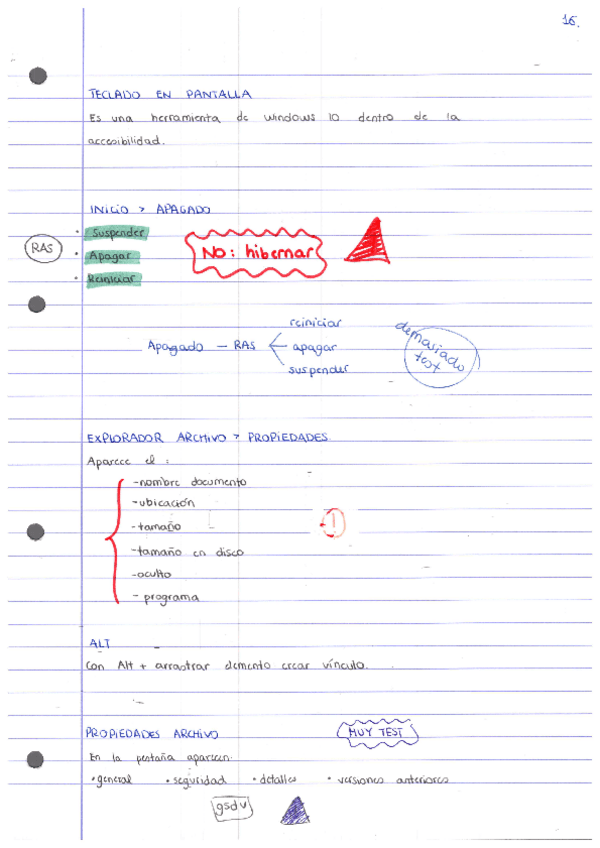 16.
TECLADO EN PANTALLA
Es una herramienta de windows 10 dentro de la
accesibilidad.
INICIO > APAGADO
• Suspender
RAS
• Apagar
• Reiniciar
NO: hibernar
Apagado — RAS
reiniciar
apagar
suspender
demasiado
test
EXPLORADOR ARCHIVO > PROPIEDADES
Aparece el :
-nombre documento
-ubicación
-tamaño
-tamaño en disco
-oculto
- programa
ALT
Con Alt + arrastrar elemento crear vínculo.
PROPIEDADES ARCHIVO
MUY TEST
En la pestaña aparecen:
• general • seguridad • detalles • versiones anteriores
gsdv